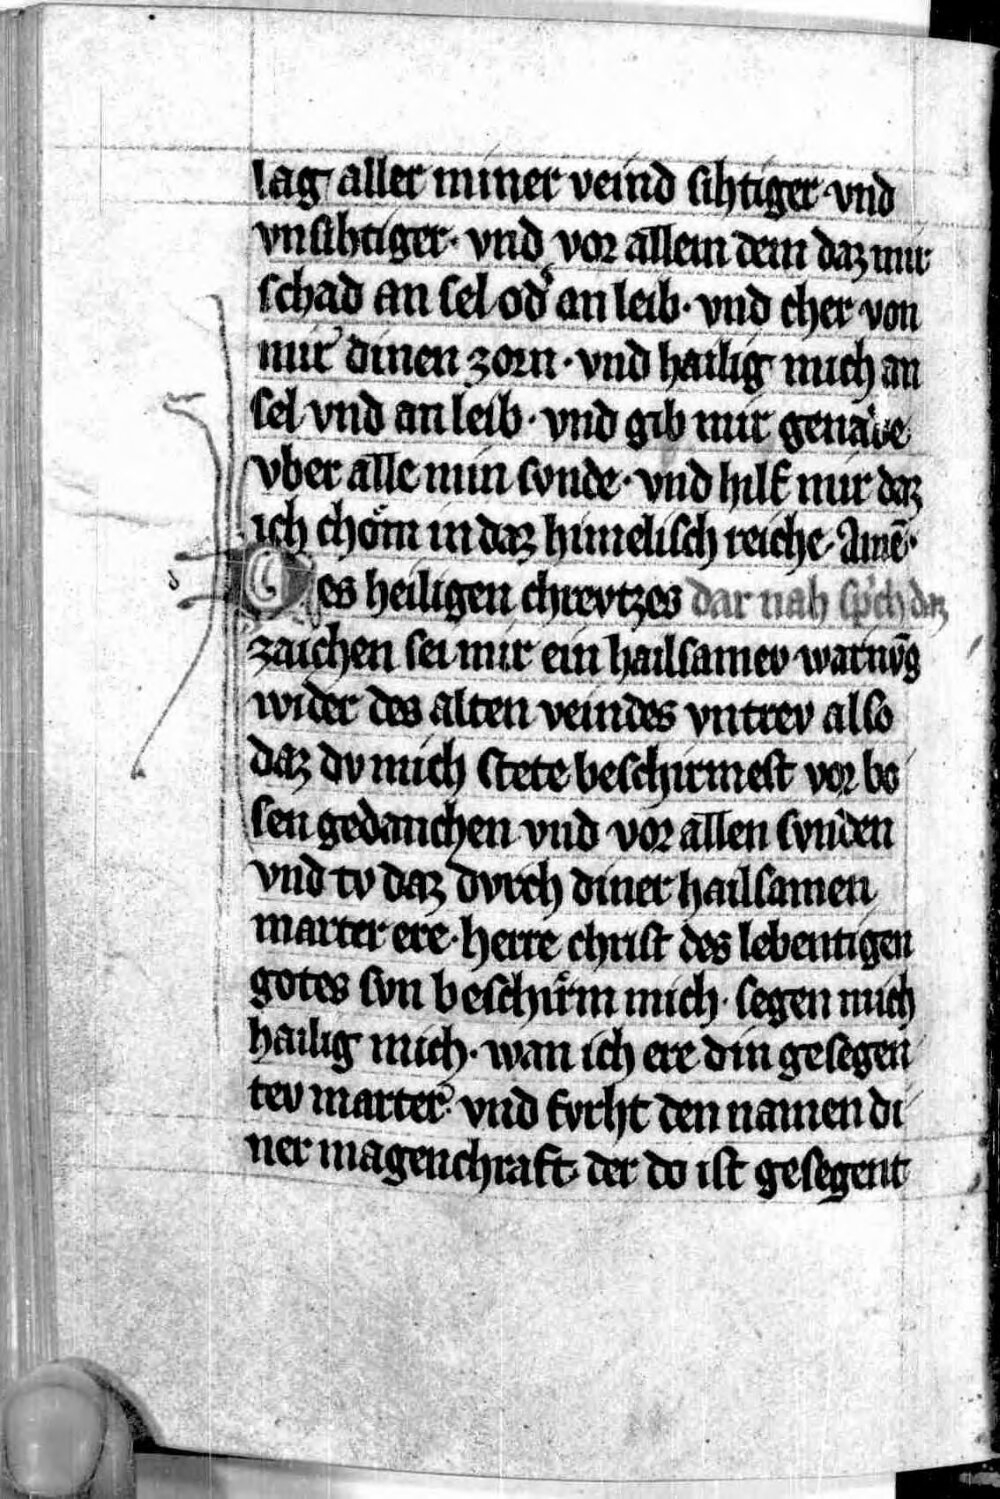 lag aller miner veind sihtiger · vnd
vnsihtiger · vnd vor allem dem daz mir
schad an sel od͛ an leib · vnd cher von
mir dinen zorn · vnd hailig mich an
sel vnd an leib · vnd gib mir genade
vber alle min svnde · vnd hilf mir daz
ich chom in daz himelisch reiche · Amē ·
Des heiligen chrevtzes dar nah sp̄ch daz
zaichen sei mir ein hailsamev warnv̄g
wider des alten veindes vntrev also
daz dv mich stete beschirmest vor bo
sen gedanchen vnd vor allen svnden
vnd tv daz dvrch diner hailsamen
marter ere · herre christ des lebentigen
gotes svn beschirm mich · segen mich
hailig mich · wan ich ere din gesegen
tev marter · vnd fvrht den namen di
ner magenchraft · der do ist gesegent